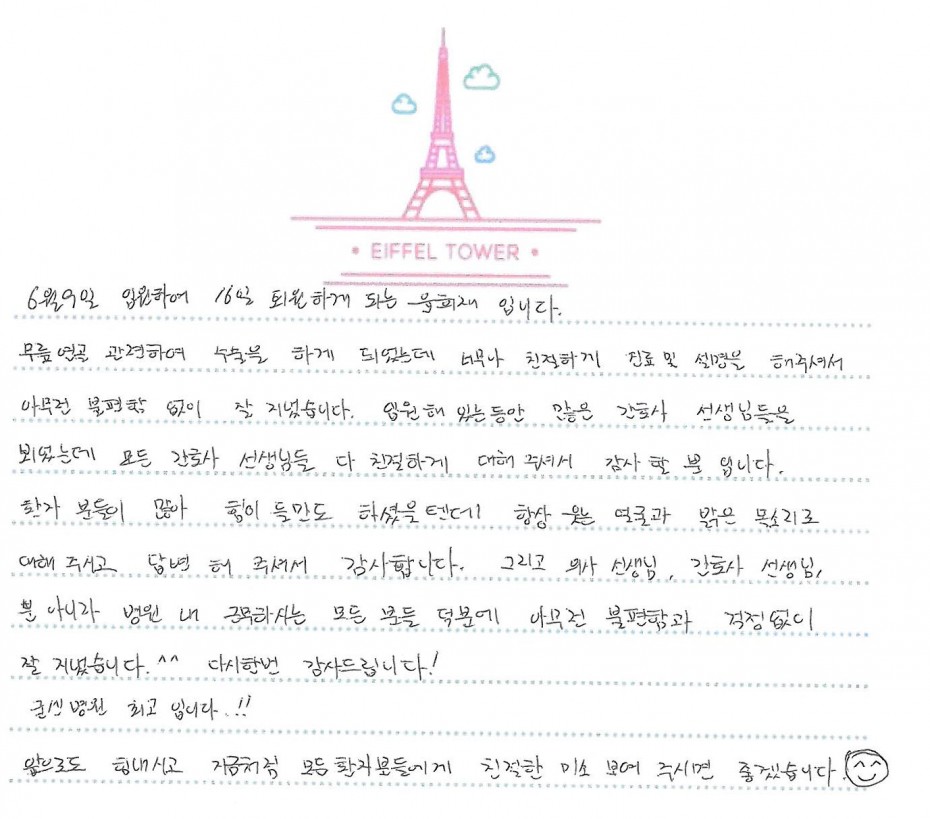 • EIFFEL TOWER •
6월9일 입원하여 16일 퇴원하게 되는 윤희재 입니다.
무릎연골 관련하여 수술을 하게 되었는데 너무나 친절하게 진료 및 설명을 해주셔서
아무런 불편함 없이 잘 지냈습니다. 입원해 있는동안 많은 간호사 선생님들을
뵈었는데 모든 간호사 선생님들 다 친절하게 대해 주셔서 감사 할 뿐 입니다.
환자 분들이 많아 힘이 들만도 하셨을텐데 항상 웃는 얼굴과 밝은 목소리로
대해 주시고 답변 해 주셔서 감사합니다. 그리고 의사 선생님, 간호사 선생님,
뿐 아니라 병원 내 근무하시는 모든 분들 덕분에 아무런 불편함과 걱정없이
잘 지냈습니다.^^ 다시한번 감사드립니다!
병원 최고 입니다.!!
앞으로도 힘내시고 지금처럼 모든환자분들에게 친절한 미소 보여 주시면 좋겠습니다.